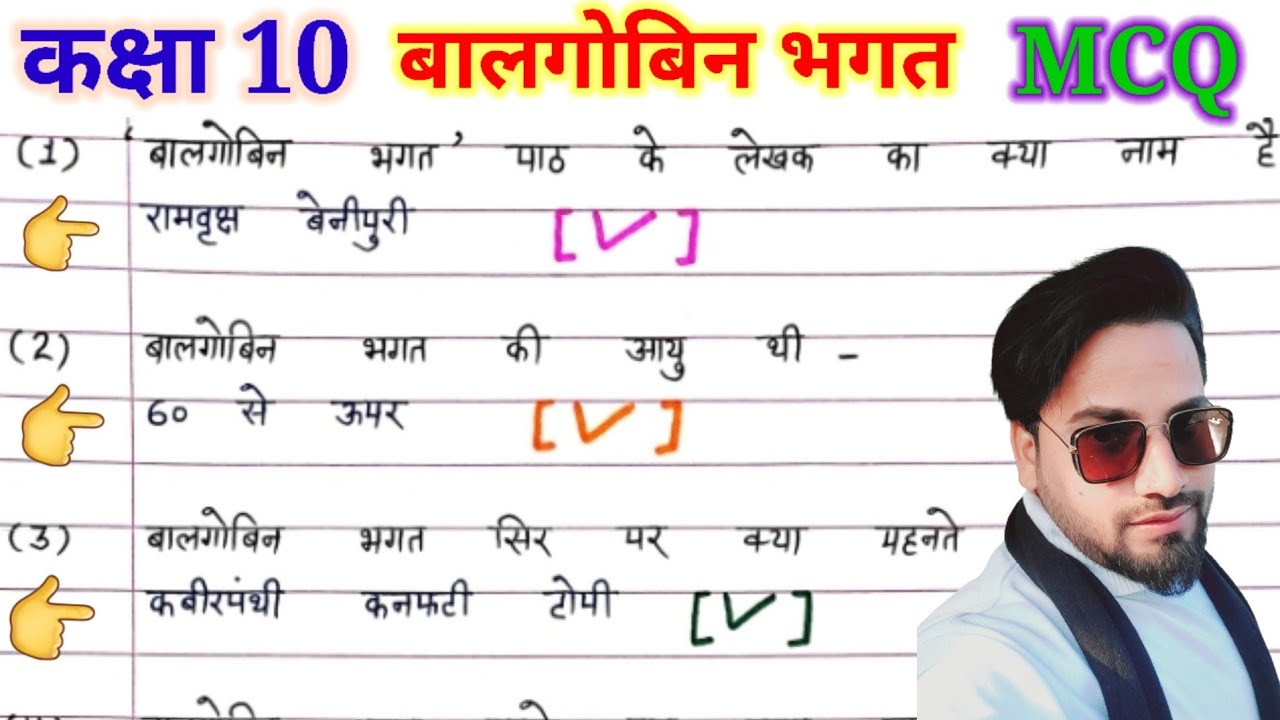 कक्षा 10 बालगोबिन भगत MCQ
(1) 'बालगोबिन भगत' पाठ के लेखक का क्या नाम है
रामवृक्ष बेनीपुरी [✓]
(2) बालगोबिन भगत की आयु थी -
60 से ऊपर [✓]
(3) बालगोबिन भगत सिर पर क्या पहनते
कबीरपंथी कनफटी टोपी [✓]
बालगोबिन